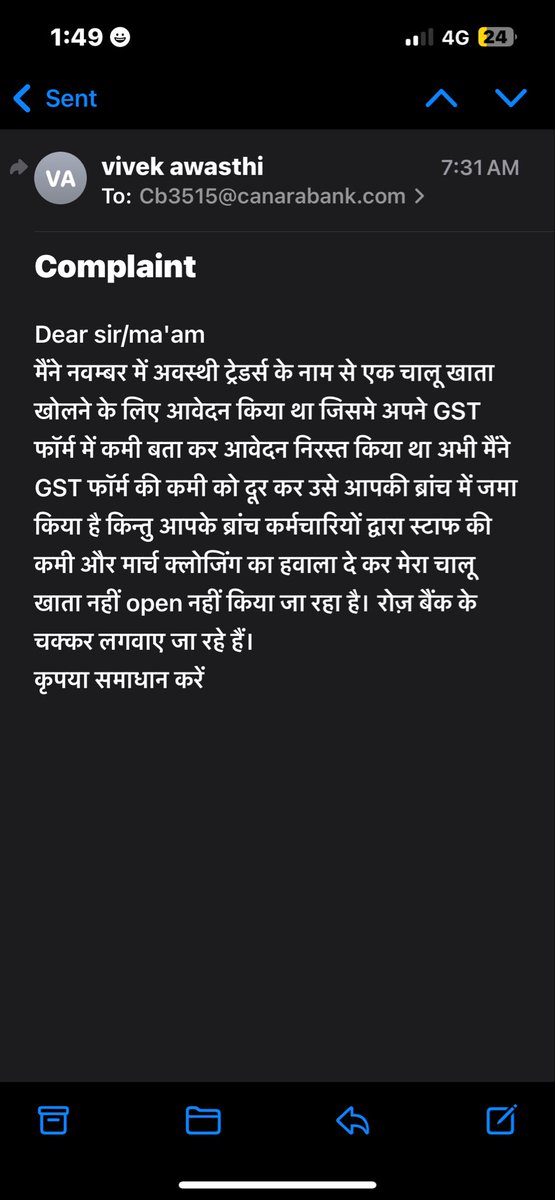 1:49
4G 24
Sent
VA
vivek awasthi
7:31 AM
To: Cb3515@canarabank.com
Complaint
Dear sir/ma'am
मैंने नवम्बर में अवस्थी ट्रेडर्स के नाम से एक चालू खाता
खोलने के लिए आवेदन किया था जिसमे अपने GST
फॉर्म में कमी बता कर आवेदन निरस्त किया था अभी मैंने
GST फॉर्म की कमी को दूर कर उसे आपकी ब्रांच में जमा
किया है किन्तु आपके ब्रांच कर्मचारियों द्वारा स्टाफ की
कमी और मार्च क्लोजिंग का हवाला दे कर मेरा चालू
खाता नहीं open नहीं किया जा रहा है। रोज़ बैंक के
चक्कर लगवाए जा रहे हैं।
कृपया समाधान करें